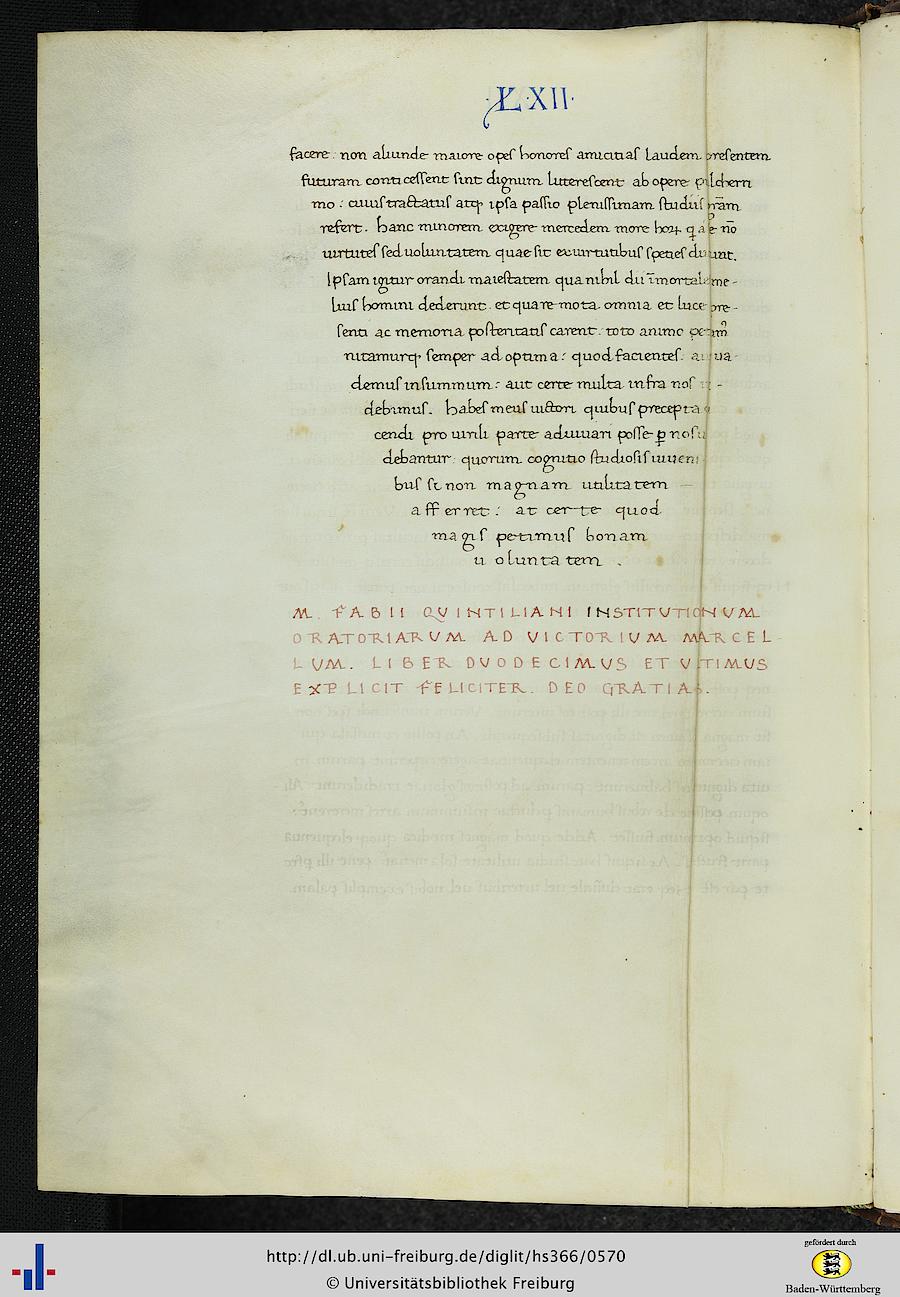 ·L·XII·
facere. non aliunde maiore opes honores amicitias laudem presentem
futuram conticessent sint dignum luterescent ab opere pulcherri
mo: cuius tractatus atq ipsa passio plenissimam studiis nr̄am
refert. hanc minorem exigere mercedem more hoꝝ q nō
uirtutes sed uoluntatem quae sit ex uirtutibus species
Ipsam igitur orandi maiestatem qua nihil dii īmortales me-
lius homini dederunt. et qua re mota omnia et luce pre-
senti ac memoria posteritatis carent: toto animo
nitamurq semper ad optima: quod facientes. ua-
demus in summum: aut certe multa infra nos -
debimus. habes meus uictori quibus precepta
cendi pro uirili parte adiuuari posse ꝑ nos
debantur: quorum cognitio studiosis iuueni
bus si non magnam utilitatem
afferret: at certe quod
magis petimus bonam
uoluntatem .
M. FABII QUINTILIANI INSTITUTIONUM
ORATORIARUM AD VICTORIUM MARCEL-
LUM. LIBER DUODECIMUS ET ULTIMUS
EXPLICIT FELICITER. DEO GRATIAS.
http://dl.ub.uni-freiburg.de/diglit/hs366/0570
© Universitätsbibliothek Freiburg
gefördert durch
Baden-Württemberg